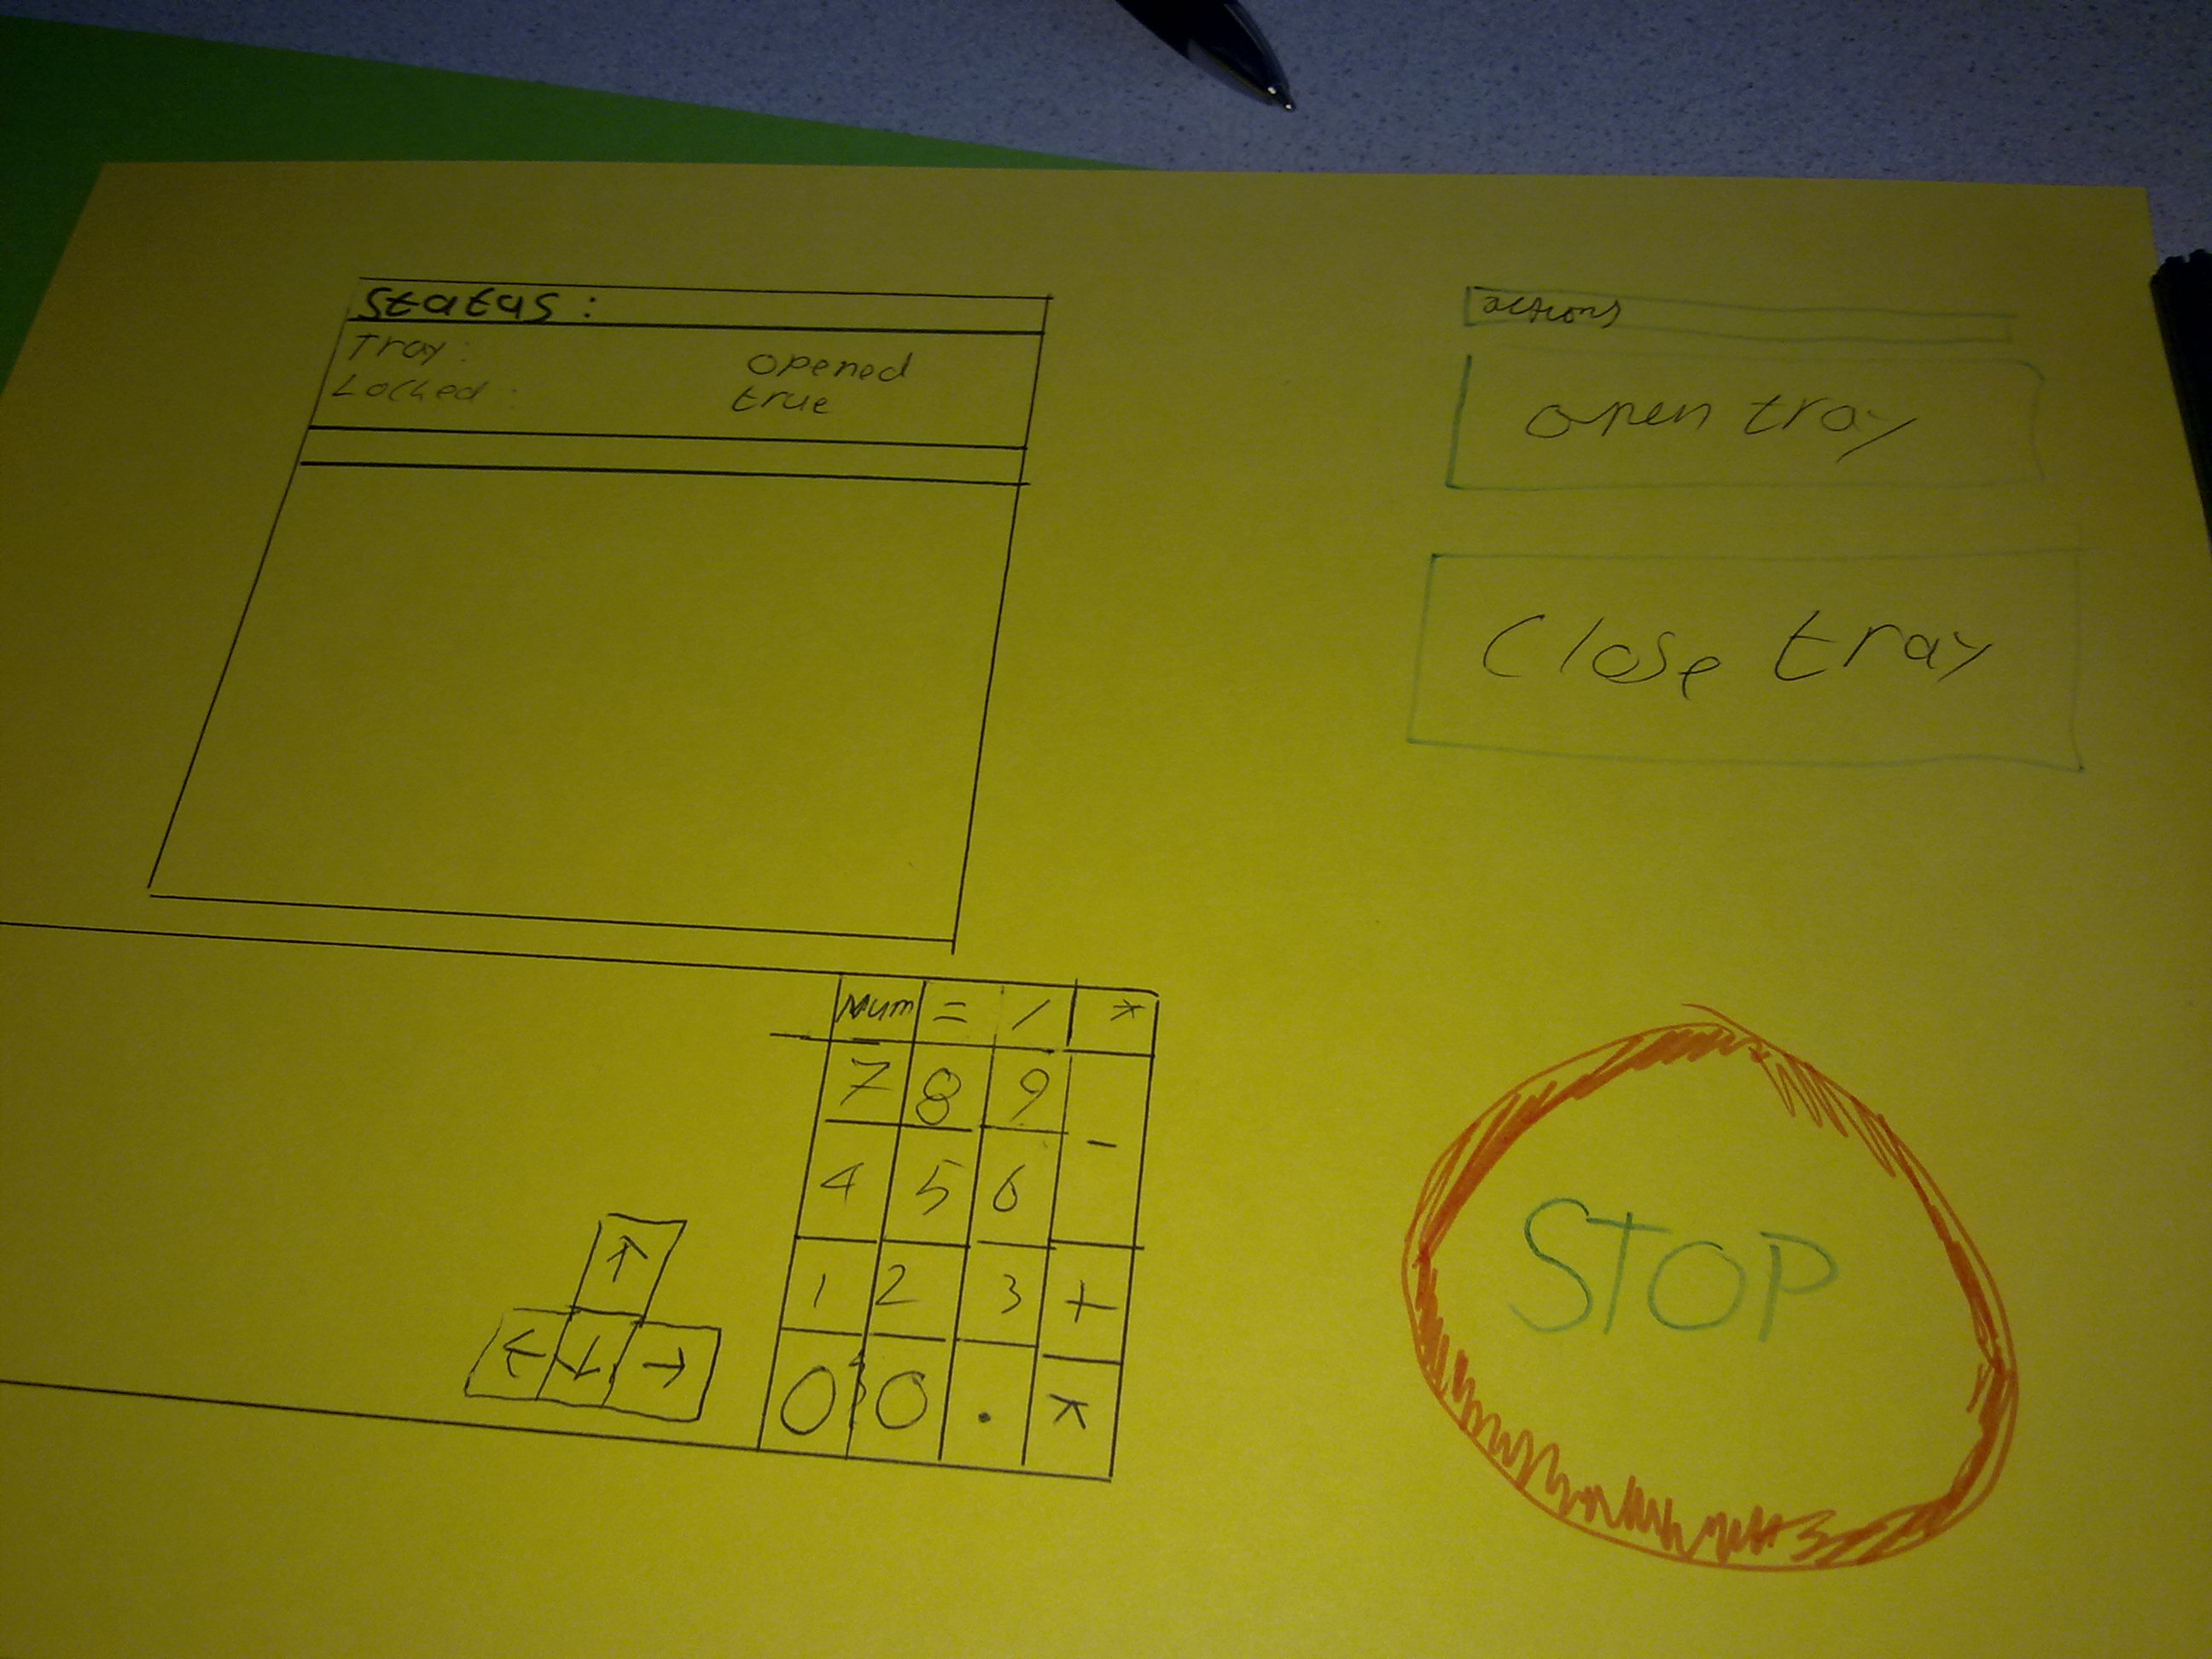 Status:
Tray: opened
Locked: true
actions
open tray
Close tray
Num = / *
7 8 9 -
4 5 6
1 2 3 +
0 0 .
↑
← ↓ →
STOP